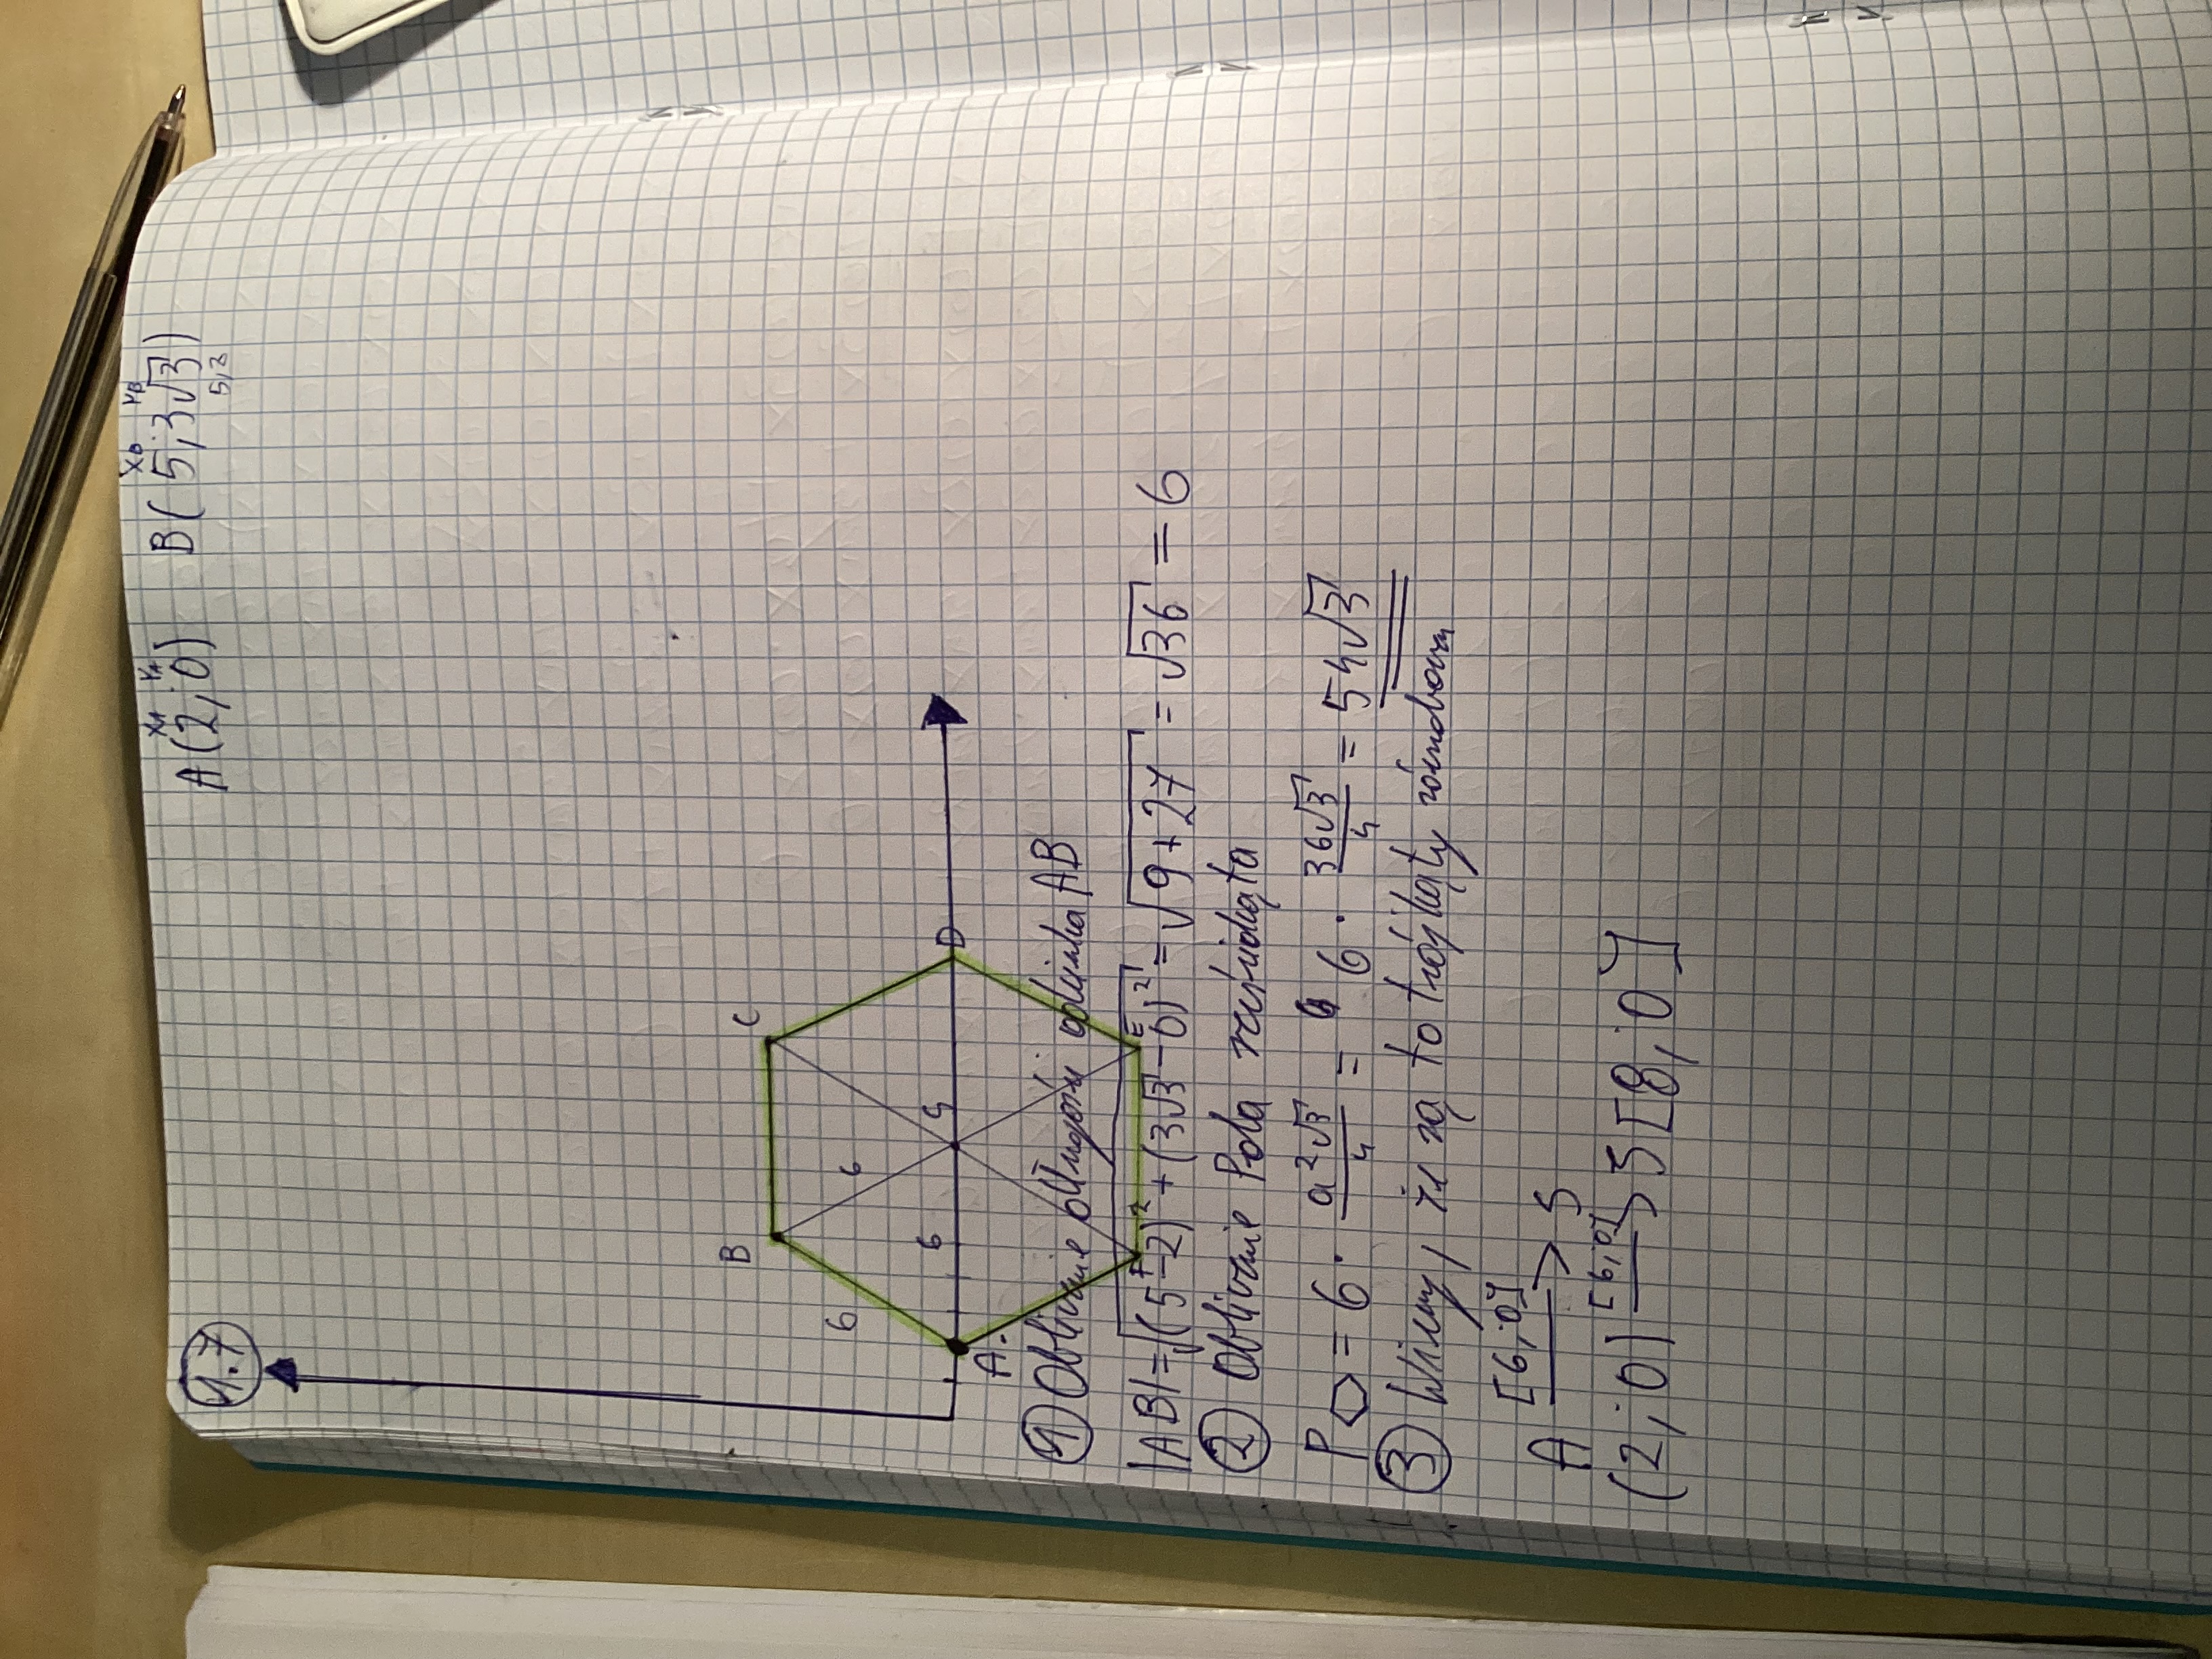 1.7
A(2;0) B(5;3√3)
xA yA xb yB
5,2
B C
6 6
6 S D
A
F E
① Obliczenie długości odcinka AB
|AB| = √(5-2)² + (3√3-0)² = √9+27 = √36 = 6
② Obliczenie Pola sześciokąta
P⬡ = 6 · a²√3/4 = 6 · 36√3/4 = 54√3
③ Wiemy, że są to trójkąty równoboczn
A [6;0] > S
(2;0) [6;0] > S [8;0]